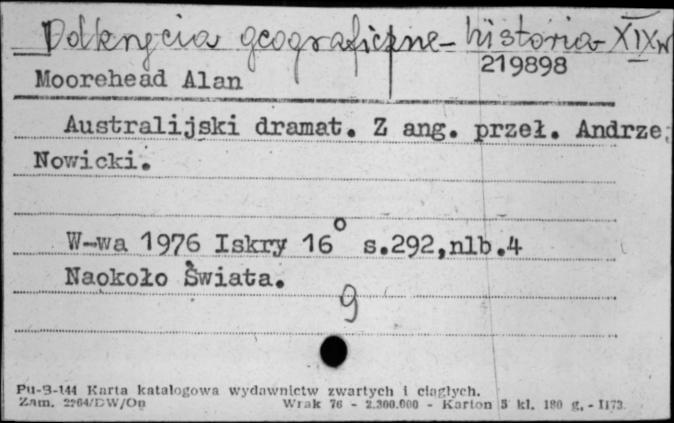 Odkrycia geograficzne - historia XIX w
219898
Moorehead Alan
Australijski dramat. Z ang. przeł. Andrze
Nowicki.
W-wa 1976 Iskry 16° s.292,nlb.4
Naokoło Świata.
9
Pu-3-144 Karta katalogowa wydawnictw zwartych i ciągłych.
Zam. 2264/DW/On Wrak 76 - 2.300.000 - Karton 5 kl. 180 g. - 1173.